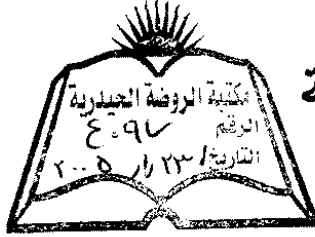 مكتبة الروضة الحيدرية
الرقم ٤٠٩٧
التاريخ / ٢٣ ٢٠٠٥